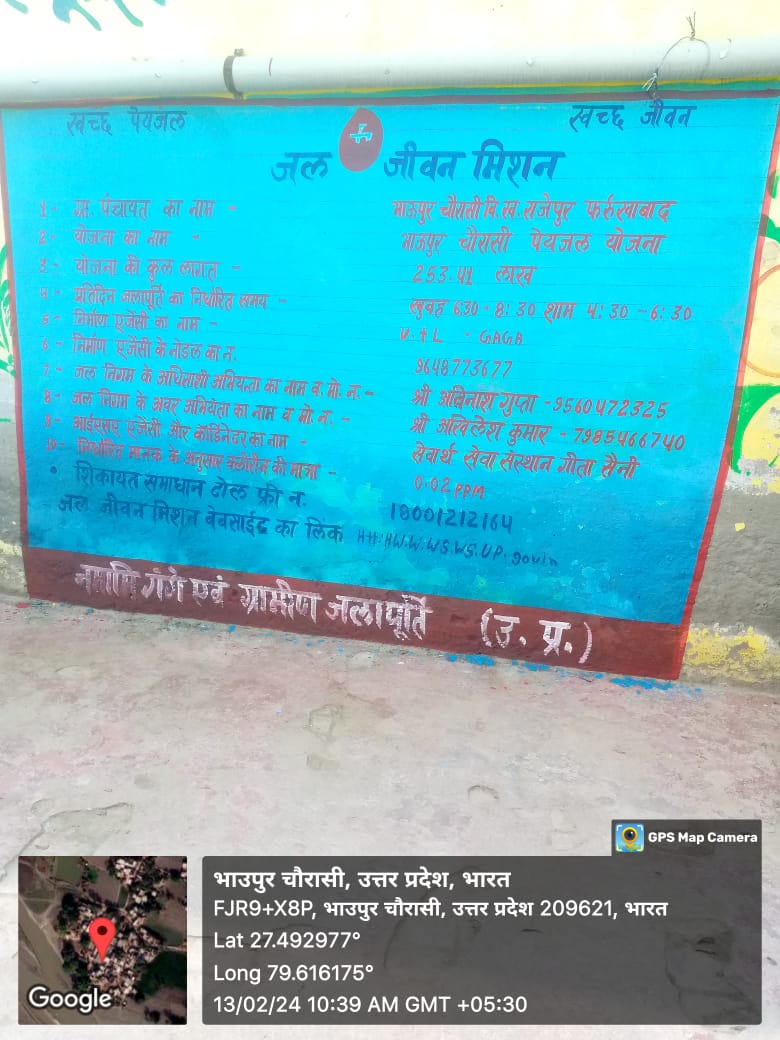 स्वच्छ पेयजल स्वच्छ जीवन
जल जीवन मिशन
1- ग्रा. पंचायत का नाम - भाऊपुर चौरासी वि.ख. राजेपुर फर्रुखाबाद
2- योजना का नाम - भाऊपुर चौरासी पेयजल योजना
3- योजना की कुल लागत - 253.41 लाख
4- प्रतिदिन जलापूर्ति का निर्धारित समय - सुबह 6:30 - 8:30 शाम 4:30 - 6:30
5- निर्माण एजेंसी का नाम - V.TL - GAGA
6- निर्माण एजेंसी के नोडल का न. 9648773677
7- जल निगम के अधिशाशी अभियन्ता का नाम व मो. न. - श्री अविनाश गुप्ता - 9560472325
8- जल निगम के अवर अभियंता का नाम व मो. न. - श्री अखिलेश कुमार - 7985466740
9- आईएसए एजेंसी और कॉर्डिनेटर का नाम - सेवार्थ सेवा संस्थान गीता सैनी
10- निर्धारित मानक के अनुसार क्लोरीन की मात्रा - 0.02 PPM
• शिकायत समाधान टोल फ्री न. 18001212164
जल जीवन मिशन बेवसाईट का लिंक HH:HW.W.WS.WS.UP.govin
नमामि गंगे एवं ग्रामीण जलापूर्ति (उ. प्र.)
GPS Map Camera
भाउपुर चौरासी, उत्तर प्रदेश, भारत
FJR9+X8P, भाउपुर चौरासी, उत्तर प्रदेश 209621, भारत
Lat 27.492977°
Long 79.616175°
13/02/24 10:39 AM GMT +05:30
Google